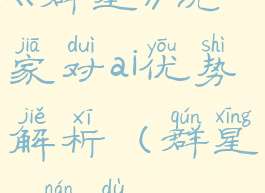 jiā duì yōu shì
家对ai优势
jiě xī qún xīng
解析（群星
nán dù